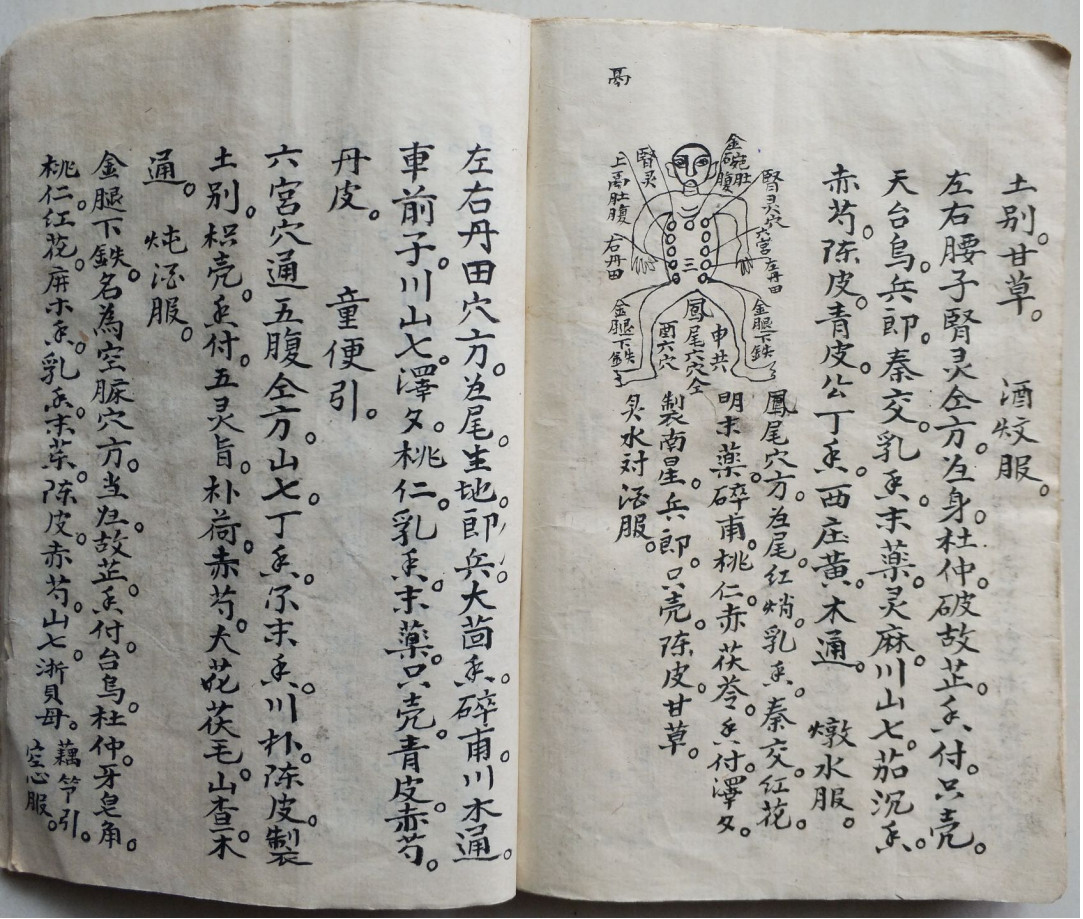 土别。甘草。 酒炆服。
左右腰子腎灵仝方。归身。杜仲。破故芷。香付。只壳。
天台烏。兵郎。秦交。乳香。末薬。灵麻。川山七。茄沉香。
赤芍。陈皮。青皮。公丁香。西庄黄。木通。 燉水服。
金碗肚腹
腎灵穴
六宮
左丹田
腎灵
上鬲肚腹
右丹田
金腿下鉄
鳳尾穴
申共
酉六穴仝
金腿下鉄
鳳尾穴方。归尾。红梢。乳香。秦交。红花。
明末薬。碎甫。桃仁。赤茯苓。香付。澤夕。
製南星。兵郎。只壳。陈皮。甘草。
灵水对酒服。
左右丹田穴方。归尾。生地。郎兵。大茴香。碎甫。川木通。
車前子。川山七。澤夕。桃仁。乳香。末薬。只壳。青皮。赤芍。
丹皮。 童便引。
六宮穴通五腹仝方。山七。丁香。尔末香。川朴。陈皮。製
土别。枳壳。香付。五灵旨。朴荷。赤芍。大花茯毛。山查。木
通。 炖酒服。
金腿下鉄。名為空𦟛穴方。当归。故芷。香付。台烏。杜仲。牙皂角。
桃仁。红花。广木香。乳香。末薬。陈皮。赤芍。山七。浙貝母。 藕節引。
空心服。